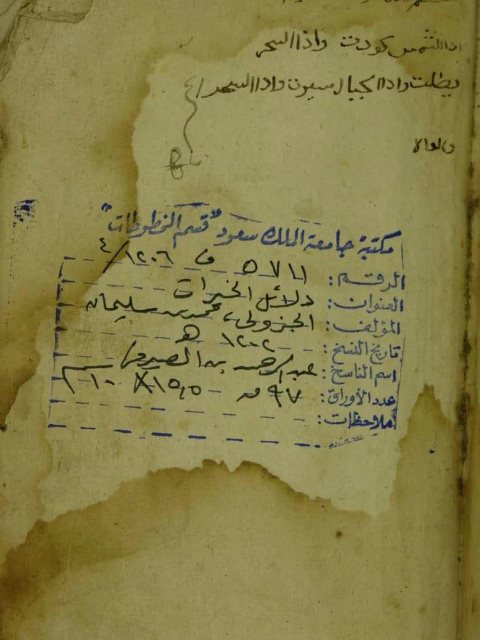 اذا الشمس كورت واذا السحر
واذا الجبال سيرت واذا السحر
مكتبة جامعة الملك سعود "قسم المخطوطات"
الرقم: ٥٧١١ ف ١٢٠٦/٤
العنوان: دلائل الخيرات
المؤلف: الجزولي، محمد بن سليمان
تاريخ النسخ: ١٢٠٢ هـ
اسم الناسخ: عبدالرحمن بن
عدد الأوراق: ٩٧ ق ١٥٫٥ × ١٠ سم
ملاحظات: